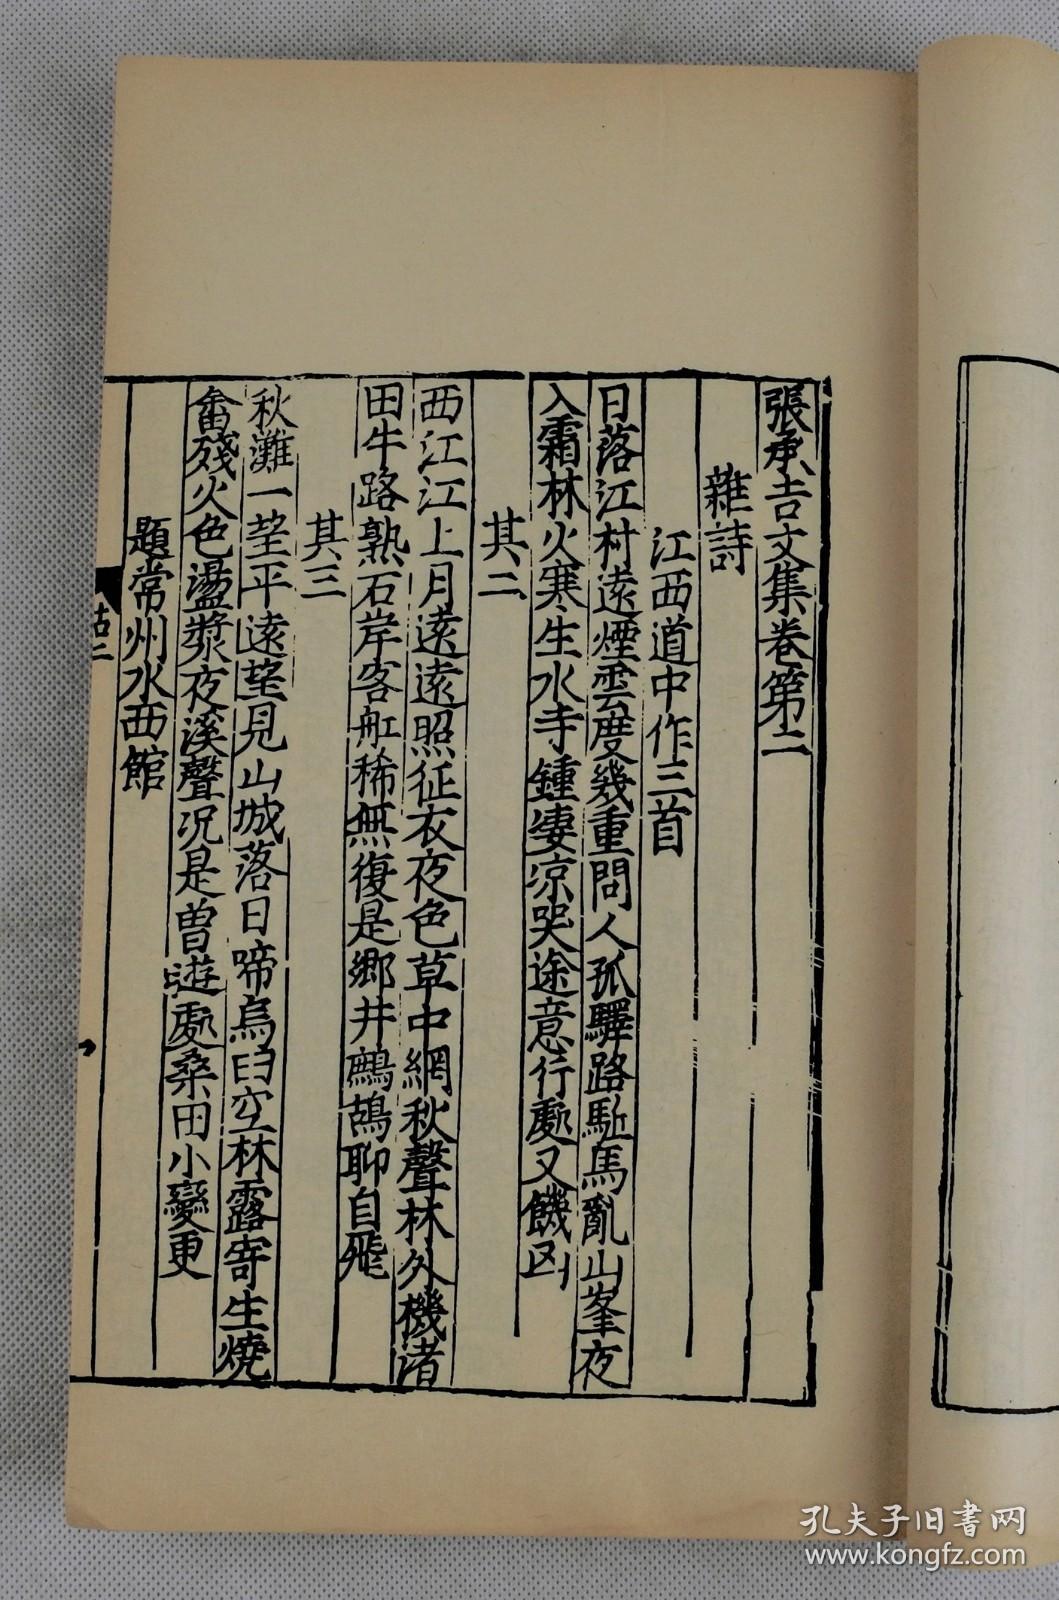 張承吉文集卷第二
雜詩
江西道中作三首
日落江村遠煙雲度幾重問人孤驛路駈馬亂山峯夜
入霜林火寒生水寺鍾凄凉哭途意行處又饑凶
其二
西江江上月遠遠照征衣夜色草中網秋聲林外機渚
田牛路熟石岸客舡稀無復是鄉井鷓鴣聊自飛
其三
秋灘一望平遠望見山城落日啼烏臼空林露寄生燒
畬殘火色盪漿夜溪聲況是曽遊處桑田小變更
題常州水西館
吉二
孔夫子旧書网
www.kongfz.com